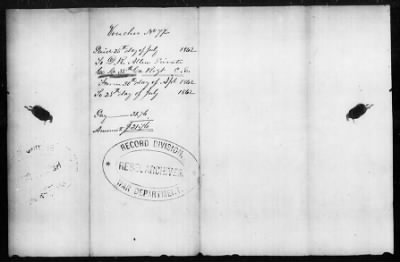 Voucher No 77
Paid 25th day of July 1862
To D. K. Allen Private
Co. 35th Ga Regt C. S.
From 30th day of Apl 1862
To 25th day of July 1862
Pay 31.16
Amount $31.16
RECORD DIVISION,
REBEL ARCHIVES,
WAR DEPARTMENT.